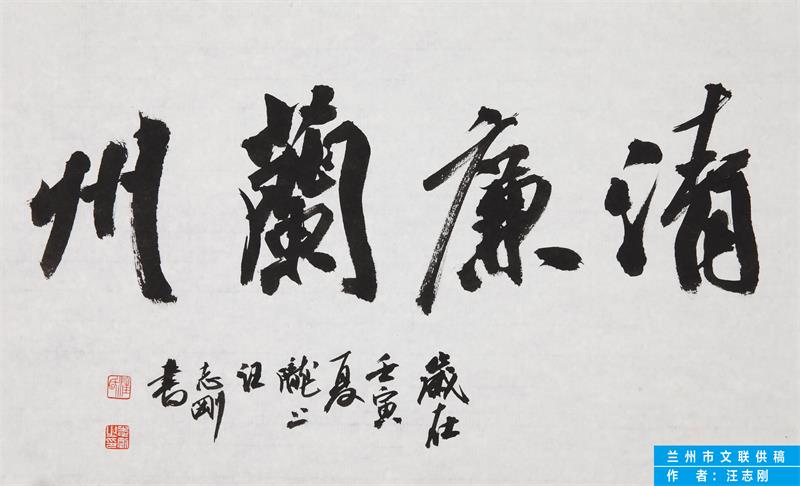 清廉蘭州
歲在
壬寅
夏
隴上
汪
志剛
書
兰州市文联供稿
作 者:汪志刚